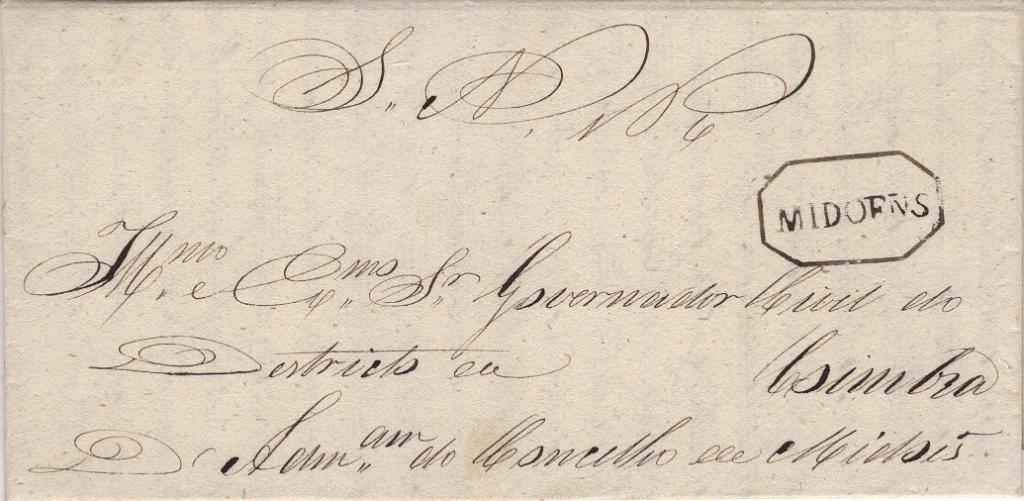 S. N. N.
MIDOENS
Illmo. e Exmo. Sr. Governador Civil do
Districto de Coimbra
D Admam. do Concelho de Midões